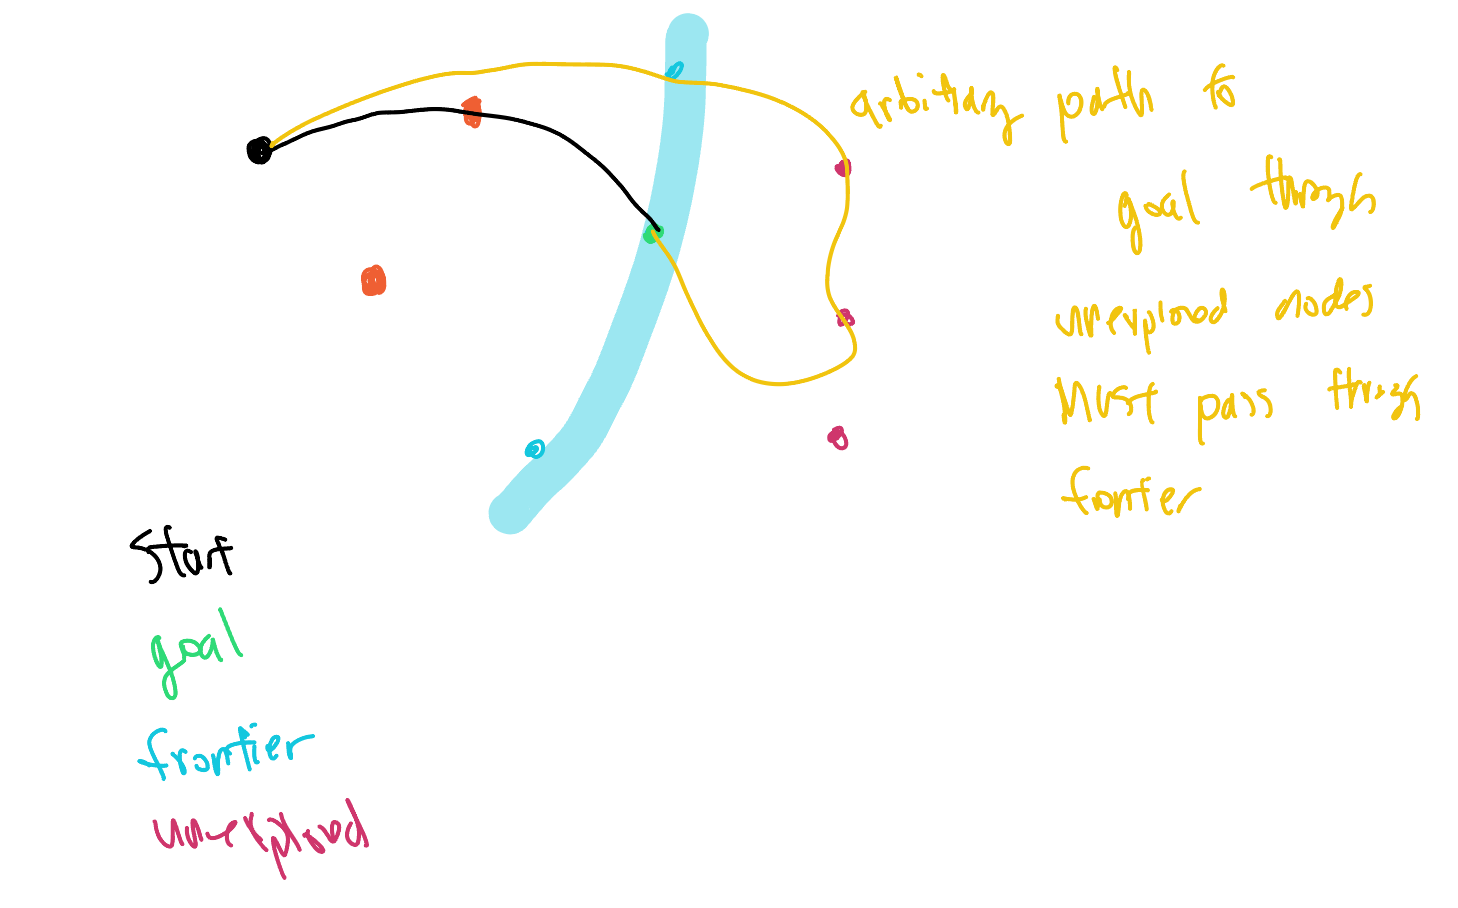 arbitrary path to
goal through
unexplored nodes
Must pass through
frontier
start
goal
frontier
unexplored